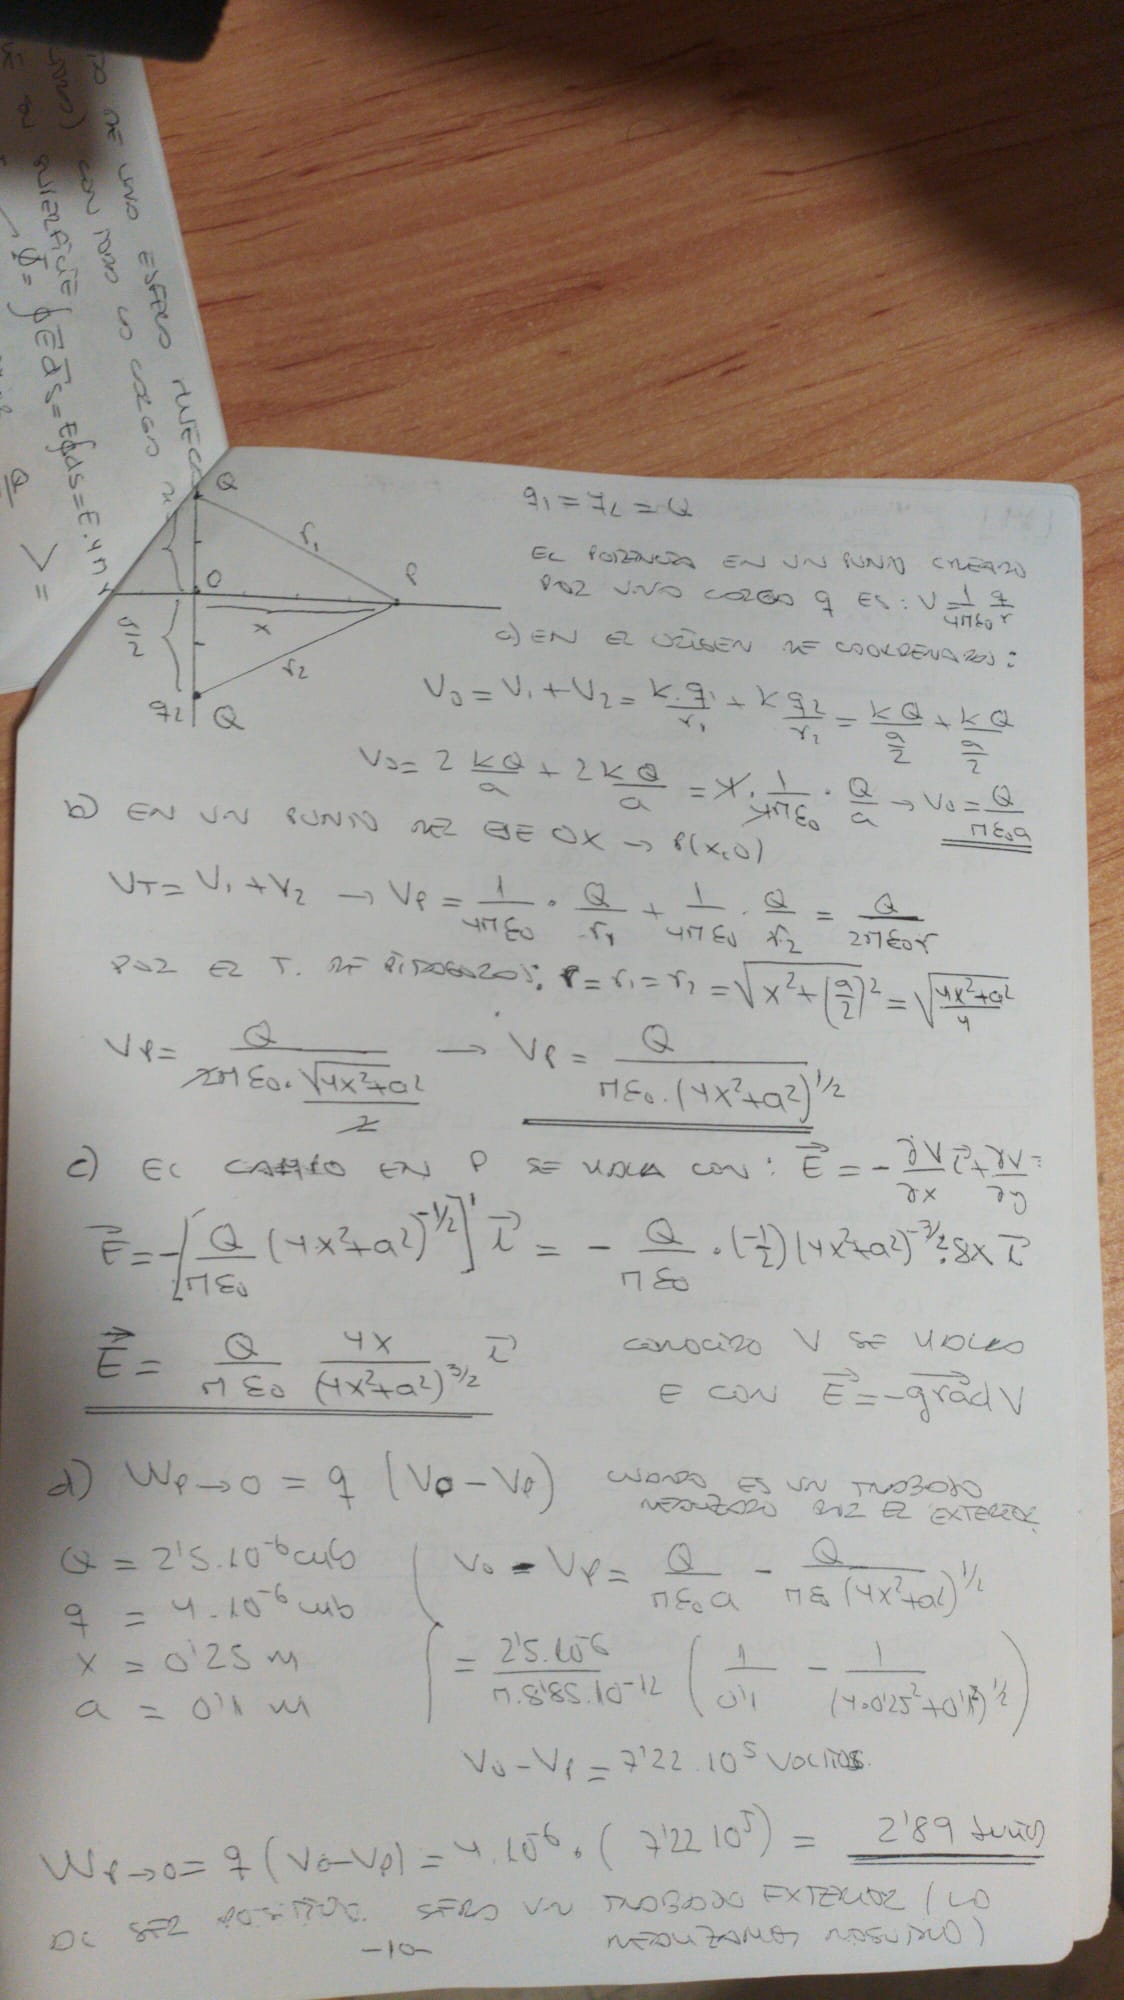 DO DE UNO ESFERO HUECO
CON TODO LO CARGO
SUPERFICIE
∮E⃗ds⃗=E∮ds=E.4π
Φ=
Q
Q
r₁
P
O
x
a/2
r₂
q₂ Q
q₁=q₂=Q
EL POTENCIAL EN UN PUNTO CREADO
POR UNO CARGO q ES: V=1/4πε₀ q/r
a) EN EL ORÍGEN DE COORDENADAS:
V₀=V₁+V₂= K.q₁/r₁ + K q₂/r₂ = KQ/(a/2) + KQ/(a/2)
V₀= 2 KQ/a + 2 KQ/a = 4. 1/4πε₀ . Q/a → V₀= Q/πε₀a
b) EN UN PUNTO DEL EJE OX → P(x,0)
VT= V₁+V₂ → Vp = 1/4πε₀ . Q/r₁ + 1/4πε₀ . Q/r₂ = Q/2πε₀r
POR EL T. DE PITÁGORAS: r=r₁=r₂=√(x²+(a/2)²)=√((4x²+a²)/4)
Vp= Q/(2πε₀.√(4x²+a²)/2) → Vp = Q/(πε₀.(4x²+a²)^1/2)
c) EL CAMPO EN P SE HALLA CON: E⃗ = -∂V/∂x i⃗+∂V/∂y =
E⃗=-[Q/πε₀ (4x²+a²)^-1/2]' i⃗ = - Q/πε₀ .(-1/2)(4x²+a²)^-3/2.8x i⃗
E⃗= Q/πε₀ 4x/(4x²+a²)^3/2 i⃗
CONOCIDO V SE HALLA
E CON E⃗=-grad⃗ V
d) Wp→0 = q (V₀-Vp) CUANDO ES UN TRABAJO
REALIZADO POR EL EXTERIOR.
Q = 2'5.10⁻⁶ culb
q = 4.10⁻⁶ culb
x = 0'25 m
a = 0'1 m
V₀-Vp= Q/πε₀a - Q/πε₀(4x²+a²)^1/2
= 2'5.10⁻⁶/π.8'85.10⁻¹² (1/0'1 - 1/(4.0'25²+0'1²)^1/2)
V₀-Vp=7'22.10⁵ VOLTIOS.
Wp→0= q (V₀-Vp)= 4.10⁻⁶.(7'22 10⁵) = 2'89 Julios
AL SER POSITIVO SERO UN TRABAJO EXTERIOR (LO
REALIZAMOS NOSOTROS)
-10-